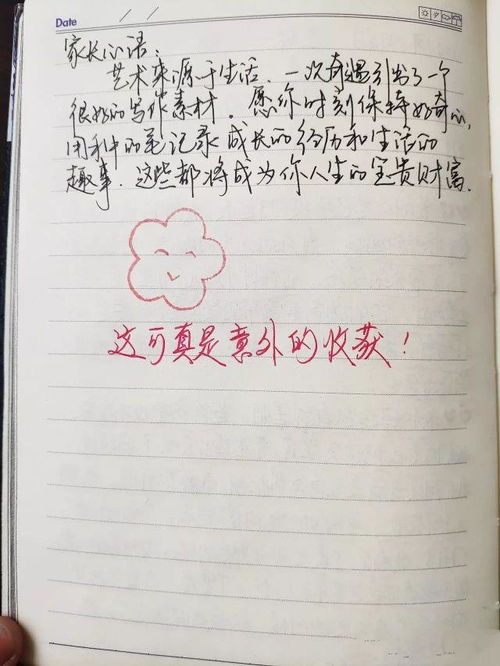 Date
家长心语:
艺术来源于生活.一次奇遇引出了一个
很好的写作素材.愿你时刻保持好奇心,
用手中的笔记录成长的经历和生活的
趣事.这些都将成为你人生的宝贵财富.
这可真是意外的收获!